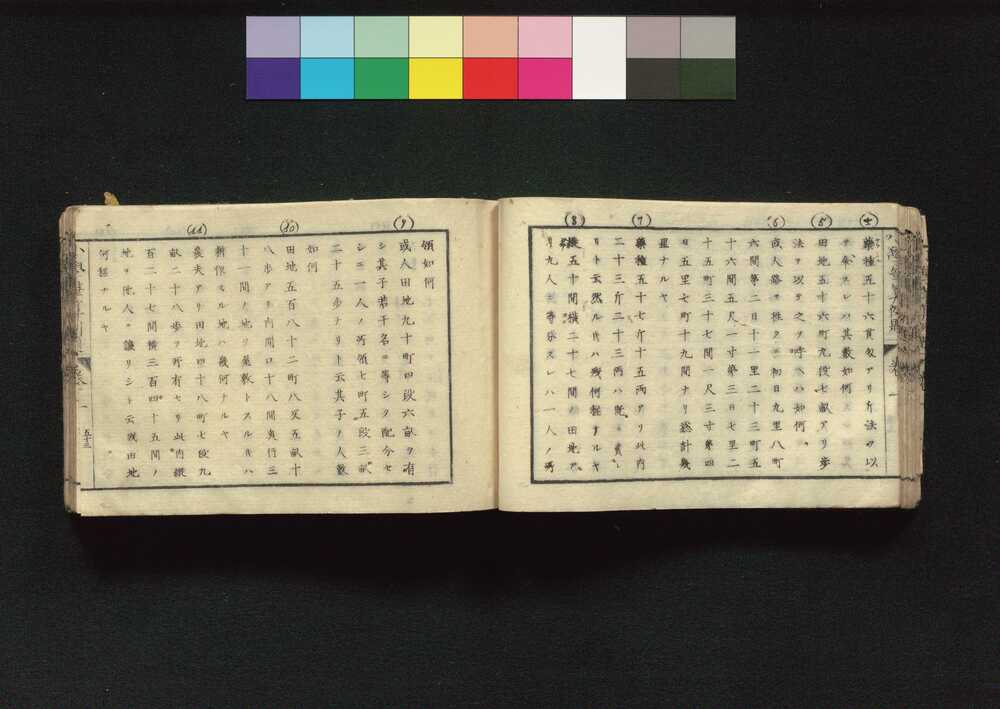 (4)
藥種五十六貫匁アリ斤法ヲ以
テ除スレハ其數如何
(5)
田地五十六町九段七畝アリ歩
法ヲ以テ之ヲ呼ヘハ如何
(6)
或人路ヲ往クニ初日九里八町
六間第二日十一里二十三町五
十六間五尺一寸第三日七里二
十五町三十七間一尺三寸第四
日五里七町十九間ナリ總計幾
里ナルヤ
(7)
藥種五十七斤十五兩アリ此内
二十三斤二十三兩ハ既ニ賣レ
リト云然ル片ハ殘何程ナルヤ
(8)
縱五十間橫二十七間ノ田地ア
リ九人ニ等分スレハ一人ノ所
領如何
(9)
或人田地九十町四段六畝ヲ有
シ其子若干名ニ等シク配分セ
シニ一人ノ所領七町五段三畝
二十五歩ナリト云其子ノ人數
如何
(10)
田地五百八十二町八反五畝十
八歩アリ内間口十八間奥行三
十一間ノ地ヲ幾數トスル片ハ
新保スル地ハ幾何ナルヤ
(11)
農夫アリ田地四十八町七段九
畝二十八歩ヲ所有セリ此内縱
百二十七間橫三百四十五間ノ
地ヲ他人ニ讓リシト云残田地
何程ナルヤ
五十三